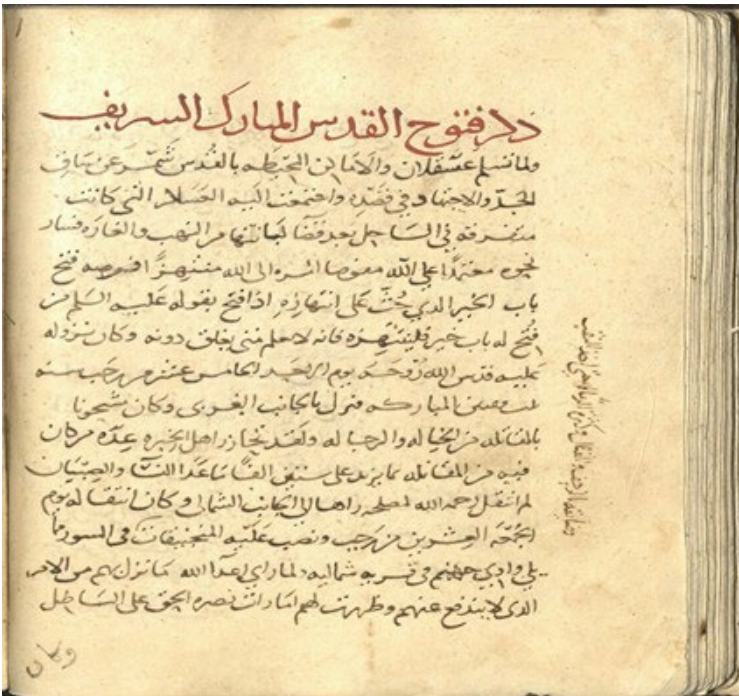 ذكر فتوح القدس المبارك الشريف
ولما تسلم عسقلان والاماكن المحيطه بالقدس شمر عن ساق
الجد والاجتهاد في قصده واجتمعت اليه العساكر التي كانت
متفرقه في الساحل بعد قضا لبانتها من النهب والغاره فسار
نحوه معتمدا على الله مفوضا امره الى الله منتهزا فرصه فتح
باب الخير الذي حث على انتهازه اذا فتح بقوله عليه السلم من
فتح له باب خير فلينتهزه فانه لا يعلم متى يغلق دونه وكان نزوله
عليه قدس الله روحه يوم الاحد الخامس عشر من رجب سنه
المباركه فنزل بالجانب الغربى وكان مشحونا
بالمقاتله من الخياله والرجاله ولقد تحازر اهل الخبره عده من كان
فيه من المقاتله بما يزيد على ستين الفا ما عدا النسا والصبيان
ثم انتقل رحمه الله لمصلحه راها الى الجانب الشمالى وكان انتقاله يوم
الجمعه العشرين من رجب ونصب عليه المنجنيقات في السور مما
يلي وادي جهنم في قرنه شماليه ولما راى اعدا الله ما نزل بهم من الامر
الذى لا يندفع عنهم وظهرت لهم امارات نصره الحق على الباطل
وكان
وضايقه بالزحف والقتال وكثره الرماه حتى اخذ النقب